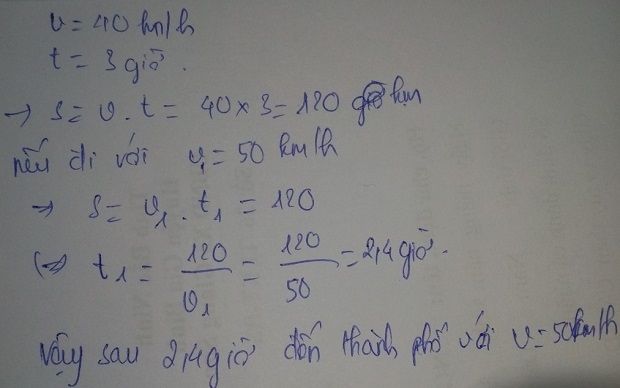 v = 40 km/h
t = 3 giờ.
→ S = v.t = 40 x 3 = 120 km
nếu đi với v₁ = 50 km/h
→ S = v₁.t₁ = 120
(⇒) t₁ = 120/v₁ = 120/50 = 2,4 giờ.
Vậy sau 2,4 giờ đến thành phố với v = 50km/h